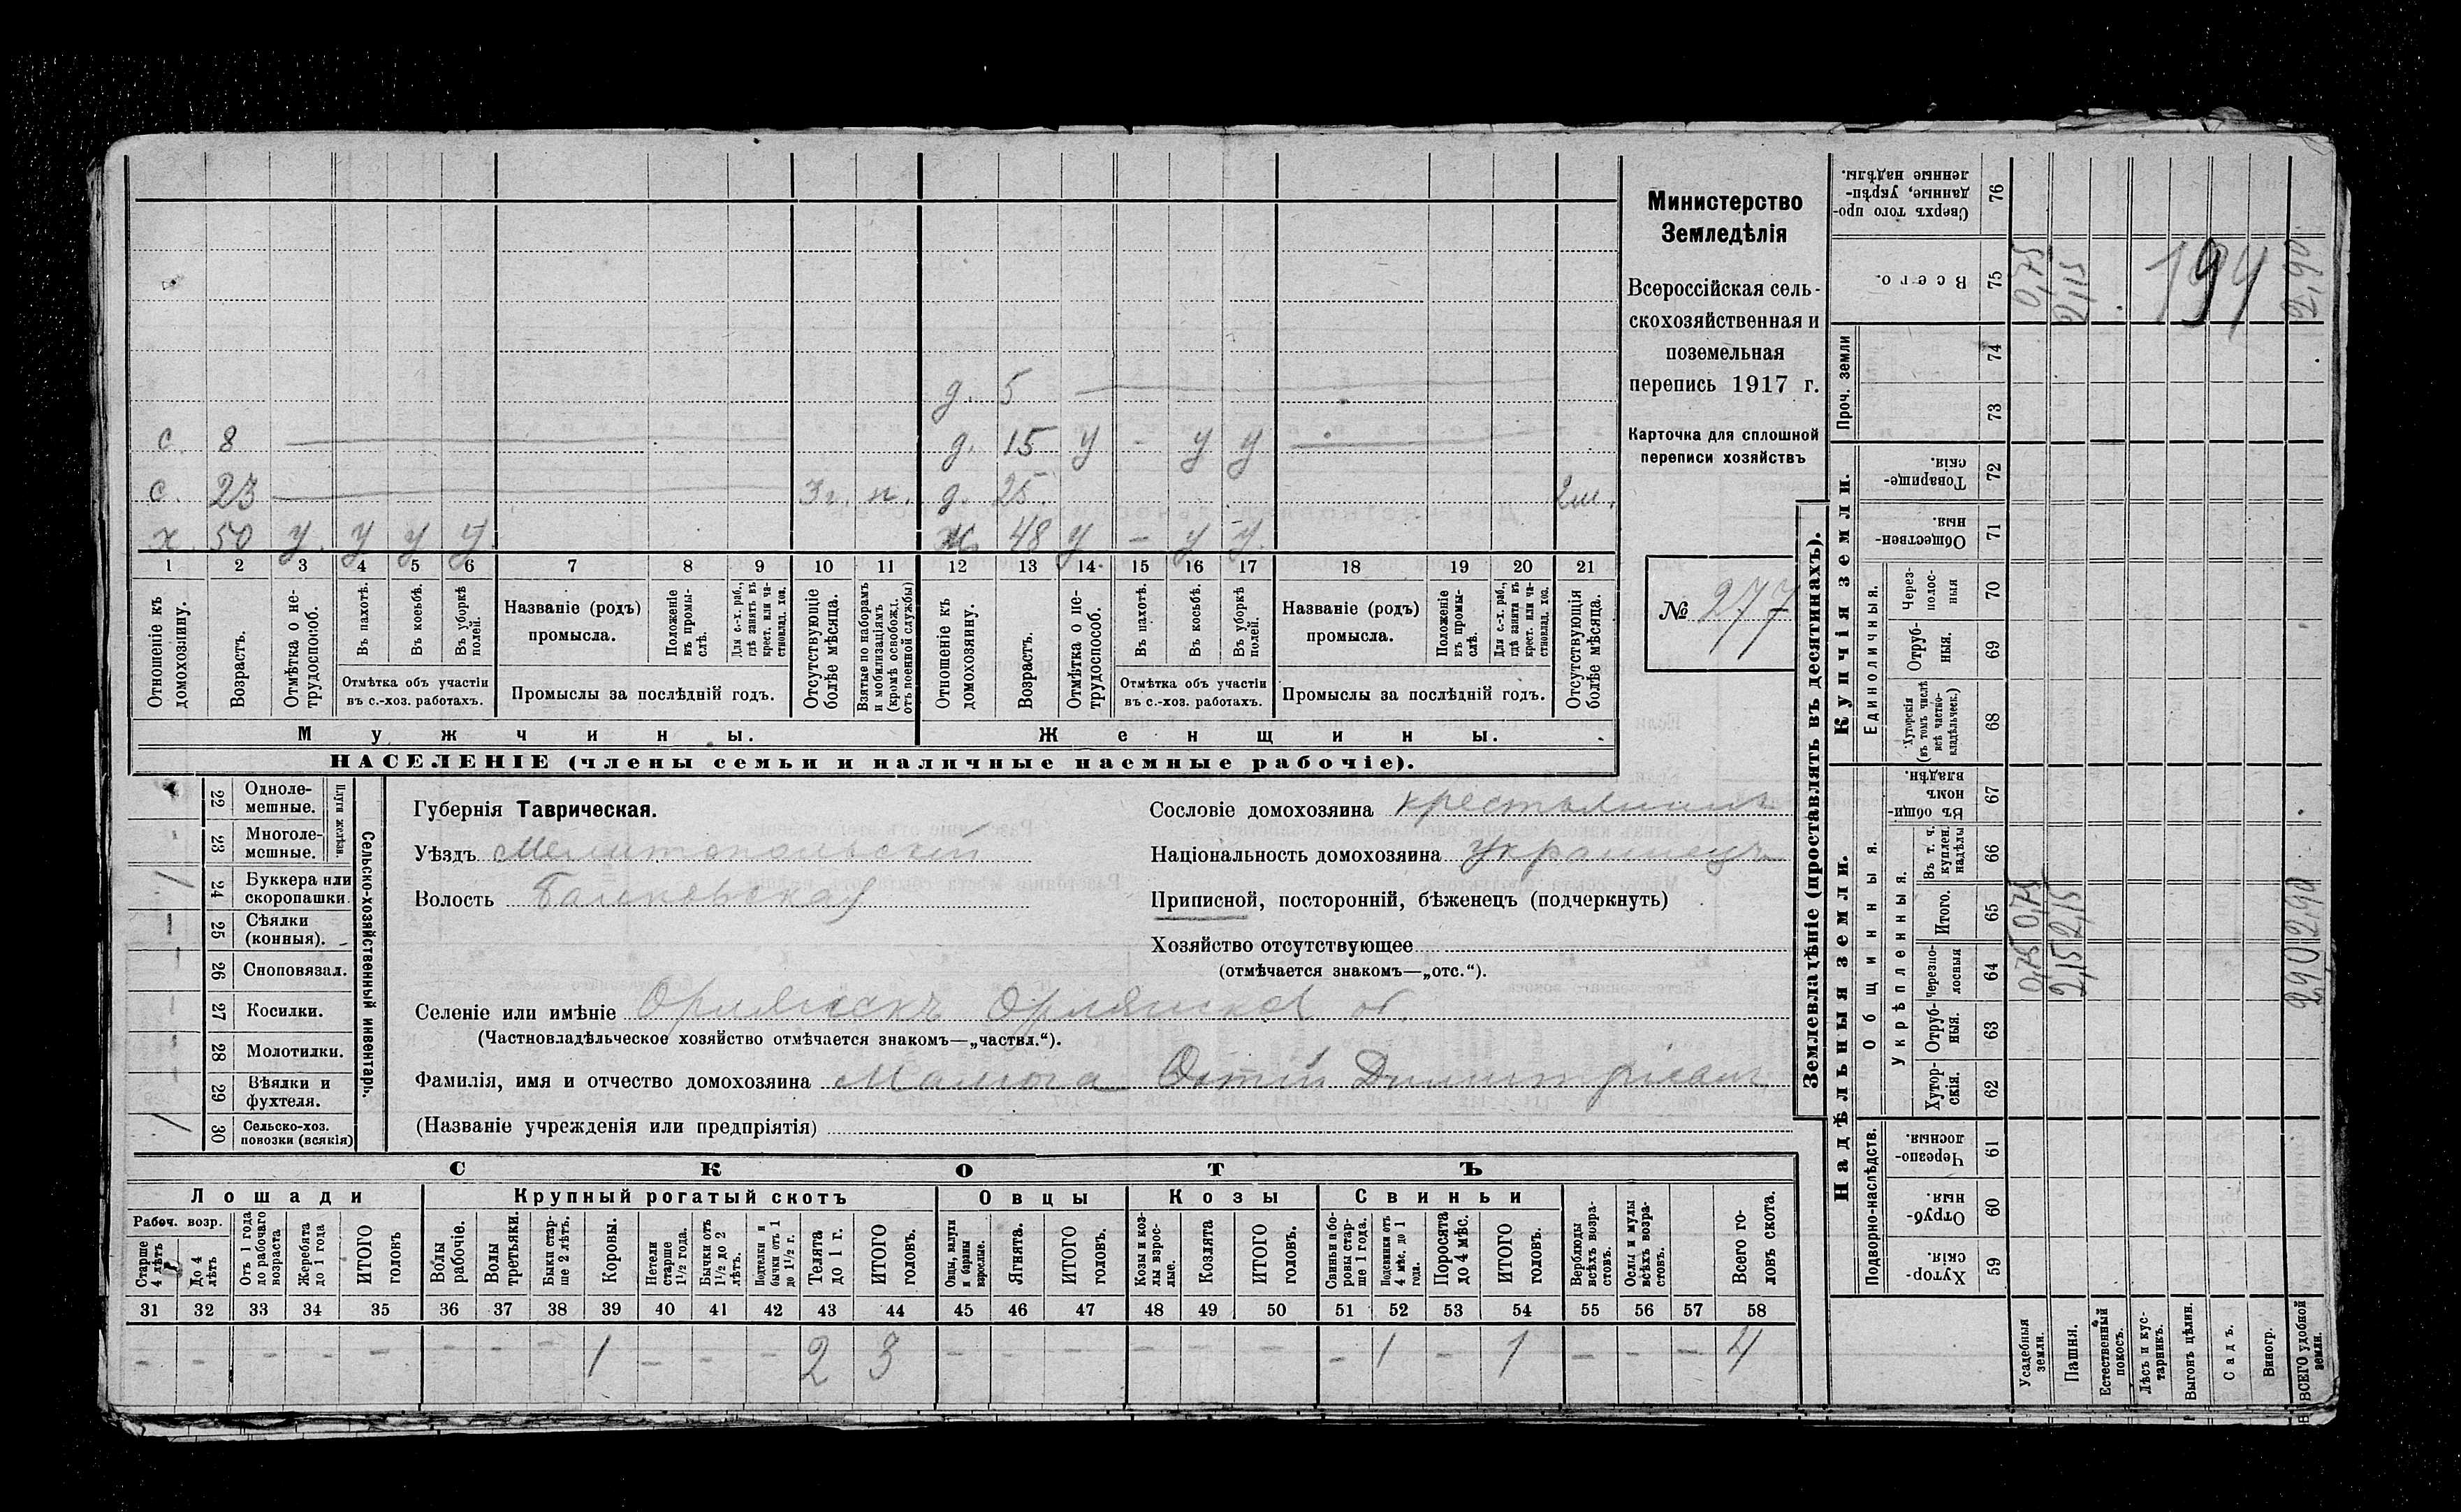 д. 5 —
с. 8 — д. 15 у - у у —
с. 23 — 3 г. п. д. 25. 2 м.
х. 50 у. у у у. ж. 48 у — у у.
1 2 3 4 5 6 7 8 9 10 11 12 13 14 15 16 17 18 19 20 21
Отношеніе къ домохозяину.
Возрастъ.
Отмѣтка о нетрудоспособ.
Въ пахотѣ.
Въ косьбѣ.
Въ уборкѣ полей.
Отмѣтка объ участіи въ с.-хоз. работахъ.
Названіе (родъ) промысла.
Положеніе въ промыслѣ.
Для с.-х. раб., гдѣ занятъ въ крест. или частновлад. хоз.
Промыслы за послѣдній годъ.
Отсутствующіе болѣе мѣсяца.
Взятые по наборамъ и мобилизаціямъ (кромѣ освобожд. отъ военной службы)
Отношеніе къ домохозяину.
Возрастъ.
Отмѣтка о нетрудоспособ.
Въ пахотѣ.
Въ косьбѣ.
Въ уборкѣ полей.
Отмѣтка объ участіи въ с.-хоз. работахъ.
Названіе (родъ) промысла.
Положеніе въ промыслѣ.
Для с.-х. раб., гдѣ занята въ крест. или частновлад. хоз.
Промыслы за послѣдній годъ.
Отсутствующія болѣе мѣсяца.
Мужчины. Женщины.
НАСЕЛЕНІЕ (члены семьи и наличные наемные рабочіе).
Министерство
Земледѣлія
Всероссійская сель-
скохозяйственная и
поземельная
перепись 1917 г.
Карточка для сплошной
переписи хозяйствъ
№ 277
22 Однолемешные.
23 Многолемешные.
Плуги желѣзн.
24 Буккера или скоропашки /
25 Сѣялки (конныя). -
26 Сноповязал. -
27 Косилки. -
28 Молотилки. -
29 Вѣялки и фухтеля. -
30 Сельско-хоз. повозки (всякія) /
Сельско-хозяйственный инвентарь.
Губернія Таврическая.
Уѣздъ Мелитопольскій
Волость
Сословіе домохозяина крестьянинъ
Національность домохозяина украинецъ
Приписной, посторонній, бѣженецъ (подчеркнуть)
Хозяйство отсутствующее
(отмѣчается знакомъ—„отс.“).
Селеніе или имѣніе Орлянскъ Орлянскаго об.
(Частновладѣльческое хозяйство отмѣчается знакомъ—„частвл.“).
Фамилія, имя и отчество домохозяина Малюга
(Названіе учрежденія или предпріятія)
СКОТЪ
Лошади Крупный рогатый скотъ Овцы Козы Свиньи
Рабоч. возр.
Старше 4 лѣтъ
До 4 лѣтъ
Отъ 1 года до рабочаго возраста
Жеребята до 1 года
ИТОГО головъ
Волы рабочіе.
Волы третьяки.
Быки старше 2 лѣтъ.
Коровы.
Нетели старше 1½ года.
Бычки отъ 1½ до 2 лѣтъ.
Подтелки и бычки отъ 1 до 1½ г.
Телята до 1 г.
ИТОГО головъ.
Овцы, валухи и бараны взрослые.
Ягнята.
ИТОГО головъ.
Козы и козлы взрослые.
Козлята
ИТОГО головъ.
Свиньи и боровы старше 1 года.
Подсвинки отъ 4 мѣс. до 1 года.
Поросята до 4 мѣс.
ИТОГО головъ.
Верблюды всѣхъ возрастовъ.
Ослы и мулы всѣхъ возрастовъ.
Всего головъ скота.
31 32 33 34 35 36 37 38 39 40 41 42 43 44 45 46 47 48 49 50 51 52 53 54 55 56 57 58
- - - - - - - - 1 - - - 2 3 - - - - - - - 1 - 1 - - - 4
Землевладѣніе (проставлять въ десятинахъ).
Купчія земли.
Надѣльныя земли.
Сверхъ того проданные, укрѣпленные надѣлы. 76
Всего. 75 0,75 2,15 2,90
194
Проч. земли 74 73
Товарищескія. 72
Общественныя. 71
Единоличныя.
Черезполосныя 70
Отрубныя. 69
Хуторскія (въ томъ числѣ всѣ частновладѣльческ.) 68
Въ общинномъ владѣн. 67
Общинныя.
Укрѣпленныя.
Въ т. ч. куплен. надѣлы 66
Итого. 65 0,75 2,15 2,90
Черезполосныя 64 0,75 2,15 2,90
Отрубныя. 63
Хуторскія. 62
Подворно-наслѣдств.
Черезполосныя. 61
Отрубныя. 60
Хуторскія. 59
Усадебныя земли.
Пашня.
Естественный покосъ.
Лѣсъ и кустарникъ.
Выгонъ цѣлин.
Садъ.
Виногр.
ВСЕГО удобной земли.